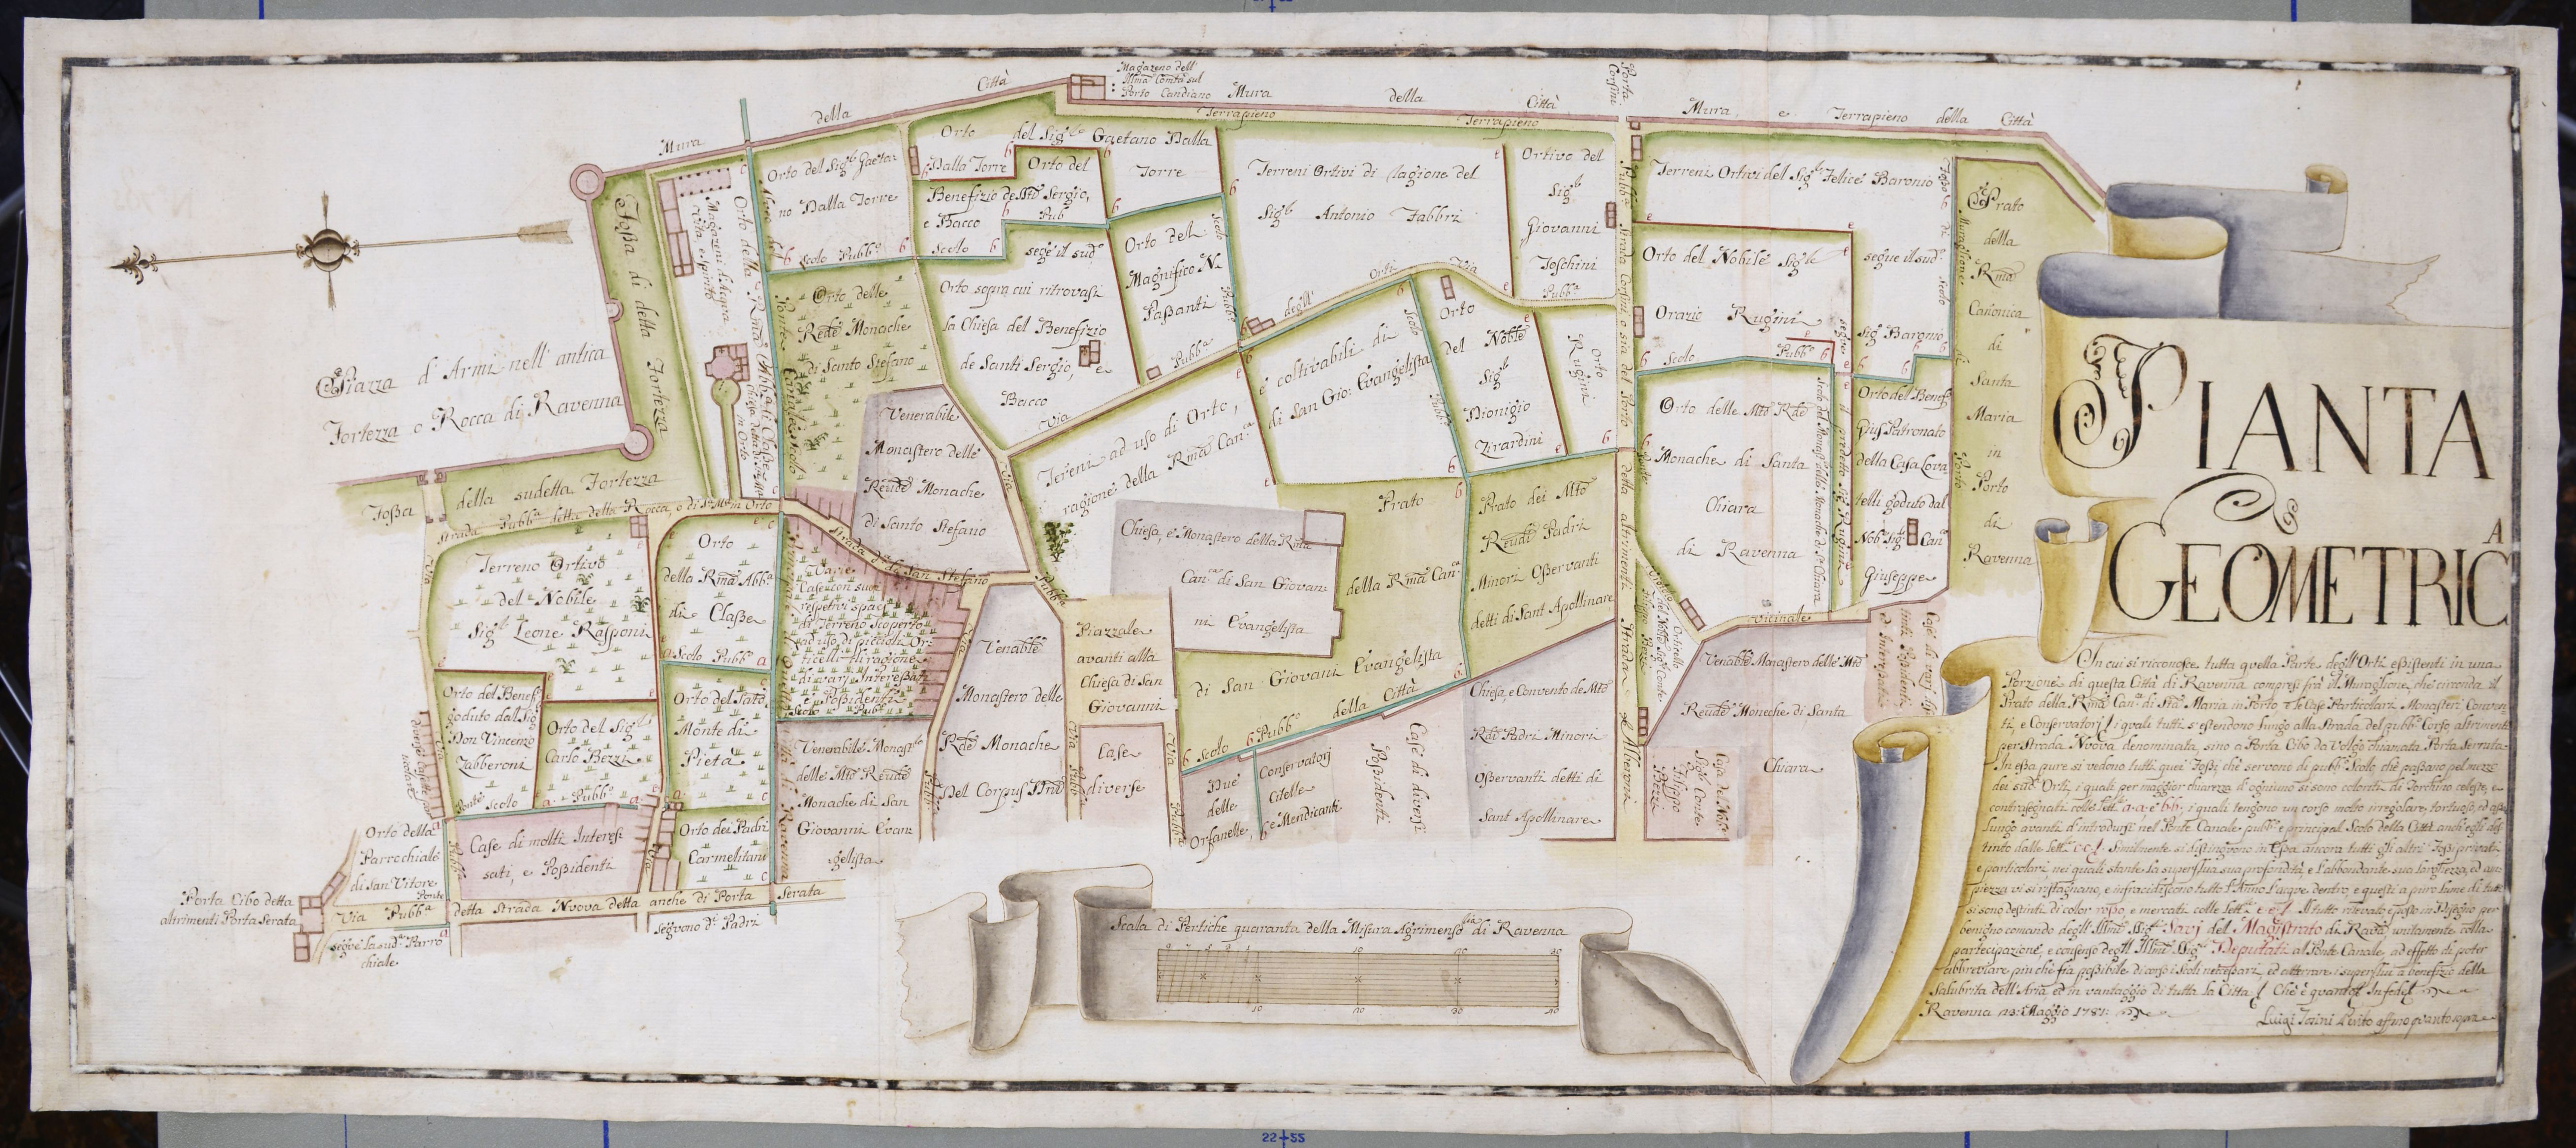 Mura
della
Città
Magazeno dell'
Illma Comtà sul
Porto Candiano
Mura
della
Città
Porta
Corsini
Mura
e
Terrapieno
della
Città
Terrapieno
Terrapieno
Fossa di della Fortezza
Piazza d'Armi nell' antica
Fortezza o Rocca di Ravenna
Fossa
della sudetta Fortezza
Strada Pubba detta della Rocca, o di Sta Ma in Orto
Orto del Sigr Gaeta=
no Dalla Torre
Scolo Pubbo
Orto
del Sigr
Gaetano Dalla
Torre
Dalla Torre
Orto del
Benefizio de SSti Sergio,
e Bacco
Scolo
Pub
segue il sudo
Orto del
Magnifico N.
Passanti
Scolo
Pubbo
Terreni Ortivi di ragione del
Sigr Antonio Fabbri
Ortivo del
Sigr
Giovanni
Foschini
Pubba
Terreni Ortivi del Sigr Felice Baronio
Orto del Nobile Sigr
Orazio Rugini
Scolo
Pubbo
segue il sudo
Sigr Baronio
Prato
della
Rma
Canonica
di
Santa
Maria
in
Porto
di
Ravenna
Orto delle
Rede Monache
di Santo Stefano
Orto sopra cui ritrovasi
la Chiesa del Benefizio
de Santi Sergio, e
Bacco
Via
Pubba
degli
Orti
Via
Venerabile
Monastero delle
Rende Monache
di Santo Stefano
Terreni ad uso di Orto,
e coltivabili di
ragione della Rma Canca
di San Gio: Evangelista
Orto
del Noble
Sigr
Dionigio
Zirardini
Orto
Rugini
Orto delle Mto Rde
Monache di Santa
Chiara
di Ravenna
Orto del Benef
Jus Patronato
della Casa Lova=
telli goduto dal
Nob Sigr Canco
Giuseppe
Chiesa, e Monastero della Rma
Canca di San Giovan=
ni Evangelista
Prato
della Rma Canca
di San Giovani Evangelista
Prato dei Mto
Rendi Padri
Minori Osservanti
detti di Sant Apollinare
Strada di San Stefano
Terreno Ortivo
del Nobile
Sigr Leone Rasponi
Orto
della Rma Abba
di Classe
Scolo Pubbo
Varie
Case con suoi
respetivi spaci
di Terreno Scoperto
ad uso di piccioli Or=
ticelli di ragione
di varj Interessati
e Possidenti
Scolo Pubbo
Venable
Monastero delle
Rde Monache
del Corpus Dni
Piazzale
avanti alla
Chiesa di San
Giovanni
Case
diverse
Scolo Pubbo della Città
Due
delle
Orfanelle,
Conservatorj
Citelle
e Mendicanti
Case di diversi
Possidenti
Chiesa, e Convento de Mto
Rdi Padri Minori
Osservanti detti di
Sant Apollinare
Vicinale
Venable Monastero delle Mto
Rende Moneche di Santa
Chiara
Casa del Noble
Sigr Conte
Filippo
Bezzi
Orto del Benef
goduto dall Sigr
Don Vincenzo
Zabberoni
Orto del Sigr
Carlo Bezzi
Ponte
Scolo
Pubbo
Orto del Sato
Monte di
Pietà
Venerabile Monasto
delle Mto Rende
Monache di San
Giovanni Evan=
gelista
Orto della
Parrochiale
di San Vitore
Ponte
Case di molti Interes=
sati, e Possidenti
Orto dei Padri
Carmelitani
Porta Cibo detta
altrimenti Porta Serata
Via Pubba detta Strada Nuova detta anche di Porta Serata
segue la suda Parro=
chiale
seguono di Padri
Scala di Pertiche quaranta della Misura Agrimensa di Ravenna
10 20 30
10 20 30 40
PIANTA
GEOMETRICA
In cui si riconosce tutta quella Parte degl'Orti essistenti in una
Porzione di questa Città di Ravenna compresi frà il Muraglione, che circonda il
Prato della Rma Canca di Sta Maria in Porto e le Case Particolari, Monasteri, Conven=
ti, e Conservatorj, i quali tutti s'estendono lungo alla Strada del pubbo Corso altrimenti
per Strada Nuova denominata, sino a Porta Cibo da Volgo chiamata Porta Serrata.
In essa pure si vedono tutti quei Fossi, che servono di pubbo Scolo, che passano pel mezzo
dei sudi Orti, i quali per maggior chiarezza d'ogniuno si sono coloriti di Torchino celeste, e
contrasegnati colle Lette a.a. e b.b. i quali tengono un corso molto irregolare, tortuoso, ed assai
lungo avanti d'introdursi nel Ponte Canale pubbo e principal Scolo della Città anch'egli dis=
tinto dalle Lette c.c. Similmente si distinguono in Essa ancora tutti gli altri Fossi privati
e particolari, nei quali stante la superflua sua profondità, e l'abbondante sua larghezza, ed am=
piezza vi si ristagnano, e infracidiscono tutto l'Anno l'acque dentro, e questi a puro lume di tutti
si sono destinti di color rosso, e mercati colle Lette e e. Il tutto rilevato e posto in Disegno per
benigno comando degl' Illmi SSigi Savj del Magistrato di Rava unitamente colla
partecipazione, e consenso degl Illmi SSigi Deputati al Ponte Canale, ad effetto di poter
abbreviare più chè fia possibile di corso i Scoli necessarj, ed atterrar i superflui a benefizio della
Salubrità dell'Aria, ed in vantaggio di tutta la Città. Che è quanto In fede
Ravenna 13: Maggio 1781:
Luigi Perito affmo quanto sopra
22+55